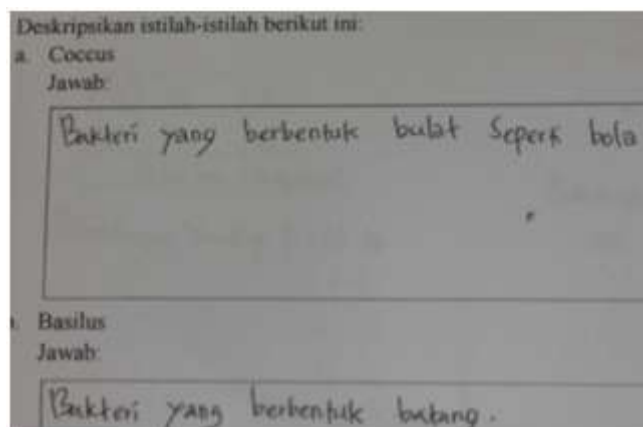 Deskripsikan istilah-istilah berikut ini:
a. Coccus
Jawab:
Bakteri yang berbentuk bulat Seperti bola
Basilus
Jawab:
Bakteri yang berbentuk batang.